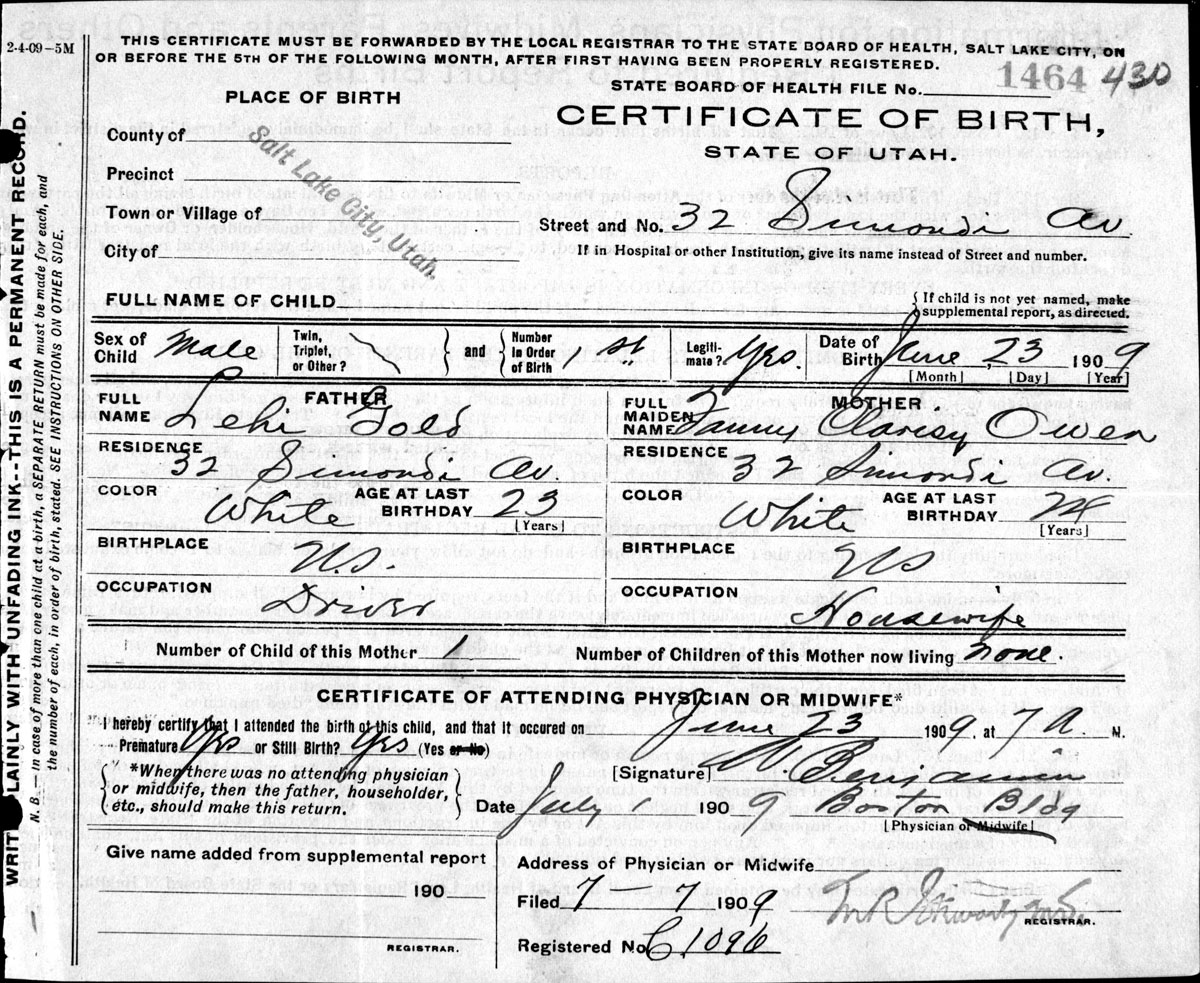 2-4-09-5M
THIS CERTIFICATE MUST BE FORWARDED BY THE LOCAL REGISTRAR TO THE STATE BOARD OF HEALTH, SALT LAKE CITY, ON
OR BEFORE THE 5TH OF THE FOLLOWING MONTH, AFTER FIRST HAVING BEEN PROPERLY REGISTERED.
1464 430
STATE BOARD OF HEALTH FILE No.
PLACE OF BIRTH
CERTIFICATE OF BIRTH,
STATE OF UTAH.
County of
Salt Lake City, Utah.
Precinct
Town or Village of
Street and No. 32 Simondi Av.
City of
If in Hospital or other Institution, give its name instead of Street and number.
FULL NAME OF CHILD
{ If child is not yet named, make
supplemental report, as directed.
Sex of Child Male
Twin, Triplet, or Other?
and
Number In Order of Birth 1st
Legiti-mate? Yes.
Date of Birth June, 23 1909
[Month] [Day] [Year]
FATHER
FULL NAME Lehi Gold
MOTHER.
FULL MAIDEN NAME Fanny Clarisy Owen
RESIDENCE 32 Simondi Av.
RESIDENCE 32 Simondi Av.
COLOR White
AGE AT LAST BIRTHDAY 23
[Years]
COLOR White
AGE AT LAST BIRTHDAY 24
[Years]
BIRTHPLACE U.S.
BIRTHPLACE US
OCCUPATION Driver
OCCUPATION Housewife
Number of Child of this Mother 1
Number of Children of this Mother now living none.
CERTIFICATE OF ATTENDING PHYSICIAN OR MIDWIFE*
I hereby certify that I attended the birth of this child, and that it occured on June 23 1909, at 7 A M.
Premature Yes or Still Birth? Yes (Yes or No)
{ *When there was no attending physician
or midwife, then the father, householder,
etc., should make this return. }
[Signature] Benjamin
Date July 1909 Boston Bldg
[Physician or Midwife]
Give name added from supplemental report
190
REGISTRAR.
Address of Physician or Midwife
Filed 7 7 1909
REGISTRAR.
Registered No C 1096
WRITE PLAINLY WITH UNFADING INK--THIS IS A PERMANENT RECORD.
N. B.--in case of more than one child at a birth, a SEPARATE RETURN must be made for each, and
the number of each, in order of birth, stated. SEE INSTRUCTIONS ON OTHER SIDE.